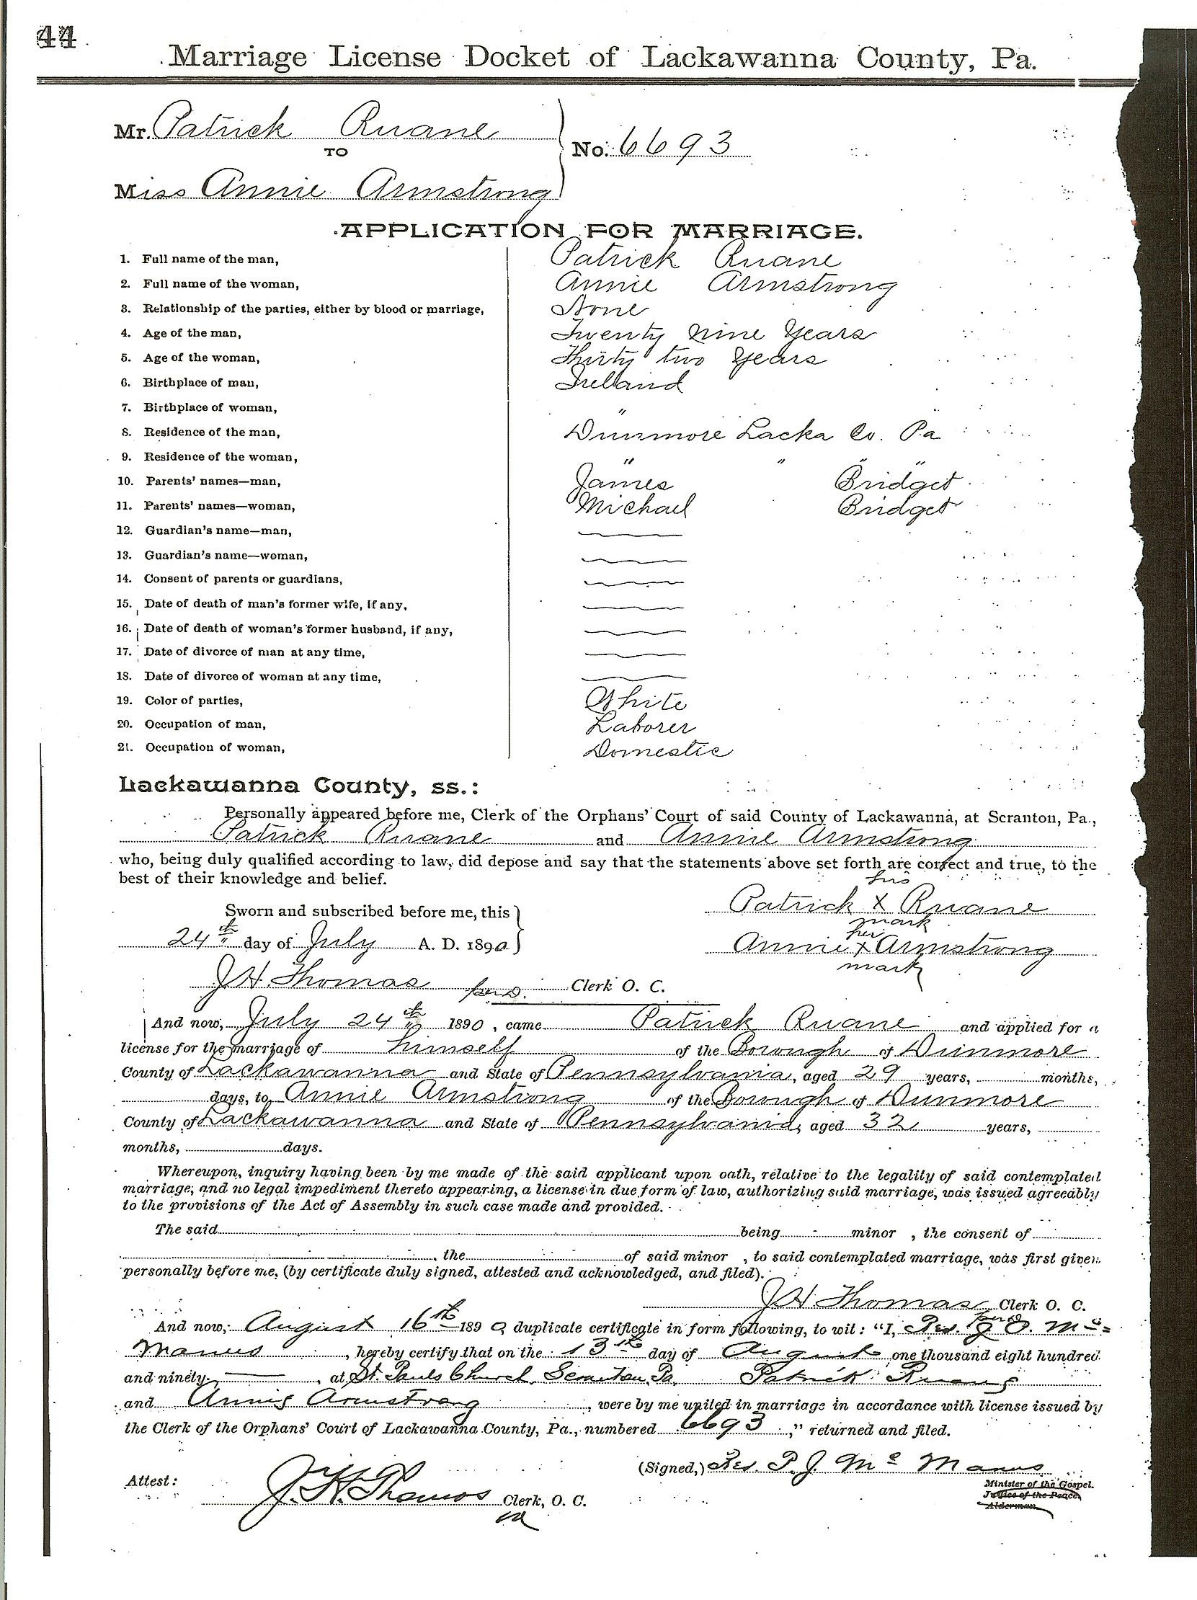 44
Marriage License Docket of Lackawanna County, Pa.
Mr. Patrick Ruane
TO
No. 6693
Miss Annie Armstrong
APPLICATION FOR MARRIAGE.
1. Full name of the man, Patrick Ruane
2. Full name of the woman, Annie Armstrong
3. Relationship of the parties, either by blood or marriage, None
4. Age of the man, Twenty nine Years
5. Age of the woman, Thirty two Years
6. Birthplace of man, Ireland
7. Birthplace of woman, "
8. Residence of the man, Dunmore Lacka Co. Pa
9. Residence of the woman, " " "
10. Parents' names—man, James Bridget
11. Parents' names—woman, Michael Bridget
12. Guardian's name—man,
13. Guardian's name—woman,
14. Consent of parents or guardians,
15. Date of death of man's former wife, if any,
16. Date of death of woman's former husband, if any,
17. Date of divorce of man at any time,
18. Date of divorce of woman at any time,
19. Color of parties, White
20. Occupation of man, Laborer
21. Occupation of woman, Domestic
Lackawanna County, ss.:
Personally appeared before me, Clerk of the Orphans' Court of said County of Lackawanna, at Scranton, Pa.,
Patrick Ruane and Annie Armstrong
who, being duly qualified according to law, did depose and say that the statements above set forth are correct and true, to the
best of their knowledge and belief.
his
Sworn and subscribed before me, this Patrick X Ruane
mark
her
24th day of July A. D. 1890 Annie X Armstrong
mark
J H Thomas Clerk O. C.
And now, July 24th 1890, came Patrick Ruane and applied for a
license for the marriage of himself of the Borough of Dunmore
County of Lackawanna and State of Pennsylvania, aged 29 years, months,
days, to Annie Armstrong of the Borough of Dunmore
County of Lackawanna and State of Pennsylvania, aged 32 years,
months, days.
Whereupon, inquiry having been by me made of the said applicant upon oath, relative to the legality of said contemplated
marriage, and no legal impediment thereto appearing, a license in due form of law, authorizing said marriage, was issued agreeably
to the provisions of the Act of Assembly in such case made and provided.
The said being minor, the consent of
, the of said minor, to said contemplated marriage, was first given
personally before me, (by certificate duly signed, attested and acknowledged, and filed).
J H Thomas Clerk O. C.
And now, August 16th 1890, duplicate certificate in form following, to wit: "I, Rev. Mc
Manus, hereby certify that on the 13th day of August one thousand eight hundred
and ninety — , at St. Pauls Church, Scranton, Pa. Patrick Ruane
and Annie Armstrong, were by me united in marriage in accordance with license issued by
the Clerk of the Orphans' Court of Lackawanna County, Pa., numbered 6693," returned and filed.
(Signed,) Rev. P. J. Mc Manus
Minister of the Gospel.
Justice of the Peace,
Alderman,
Attest: J. H. Thomas Clerk, O. C.